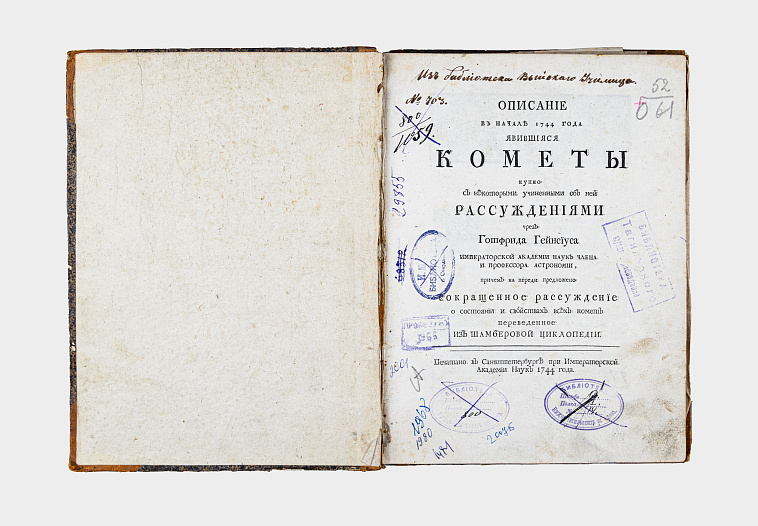 Изъ библіотека Выйскаго Училища.
№ 703.
52
061
500
1059.
ОПИСАНІЕ
ВЪ НАЧАЛѢ 1744 ГОДА
ЯВИВШІЯСЯ
КОМЕТЫ
купно
съ нѣкоторыми учиненными объ ней
РАССУЖДЕНІЯМИ
чрезъ
Готфрида Гейнсіуса
ИМПЕРАТОРСКОЙ АКАДЕМІИ НАУКЪ ЧЛЕНА
И ПРОФЕССОРА АСТРОНОМІИ,
причемъ на переди предложено
СОКРАЩЕННОЕ РАССУЖДЕНІЕ
о состояніи и свойствахъ всѣхъ кометъ
переведенное
ИЗЪ ШАМБЕРОВОЙ ЦИКЛОПЕДІИ.
Печатано въ Санктпетербургѣ при Императорской
Академіи Наукъ 1744 года.
29865
БИБЛІО
БИБЛІОТЕ
500
БИБЛІОТЕ
2968
1980